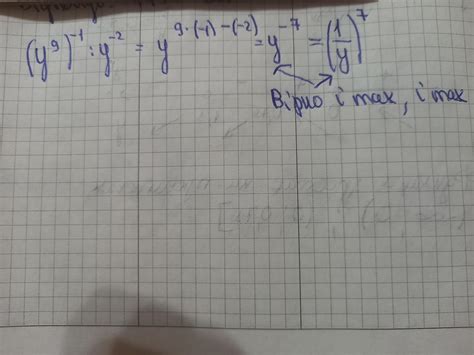 (y⁹)⁻¹ : y⁻² = y^(9·(-1)-(-2)) = y⁻⁷ = (1/y)⁷
Вірно і так, і так